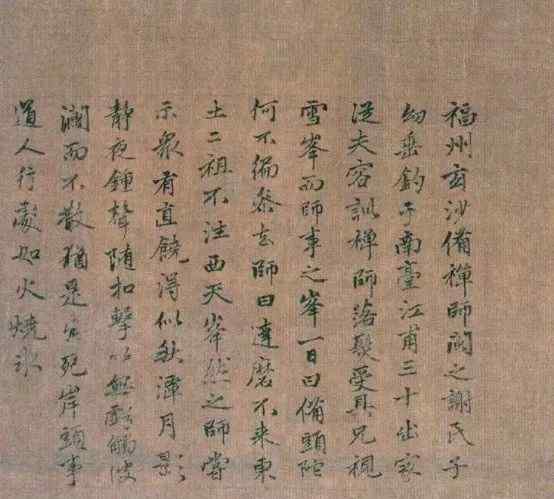 福州玄沙備禪師閩之謝氏子
幼垂釣于南臺江甫三十出家
從夫容訓禪師落髮受具兄視
雪峯而師事之峯一日曰備頭陀
何不徧叅去師曰達磨不来東
土二祖不往西天峯然之師嘗
示衆有直饒得似秋潭月影
靜夜鍾聲隨扣擊以無虧觸波
瀾而不散猶是生死岸頭事
道人行處如火燒氷